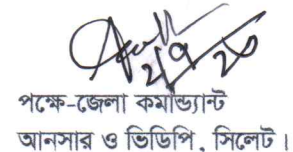 পক্ষে-জেলা কমান্ড্যান্ট
আনসার ও ভিডিপি, সিলেট।